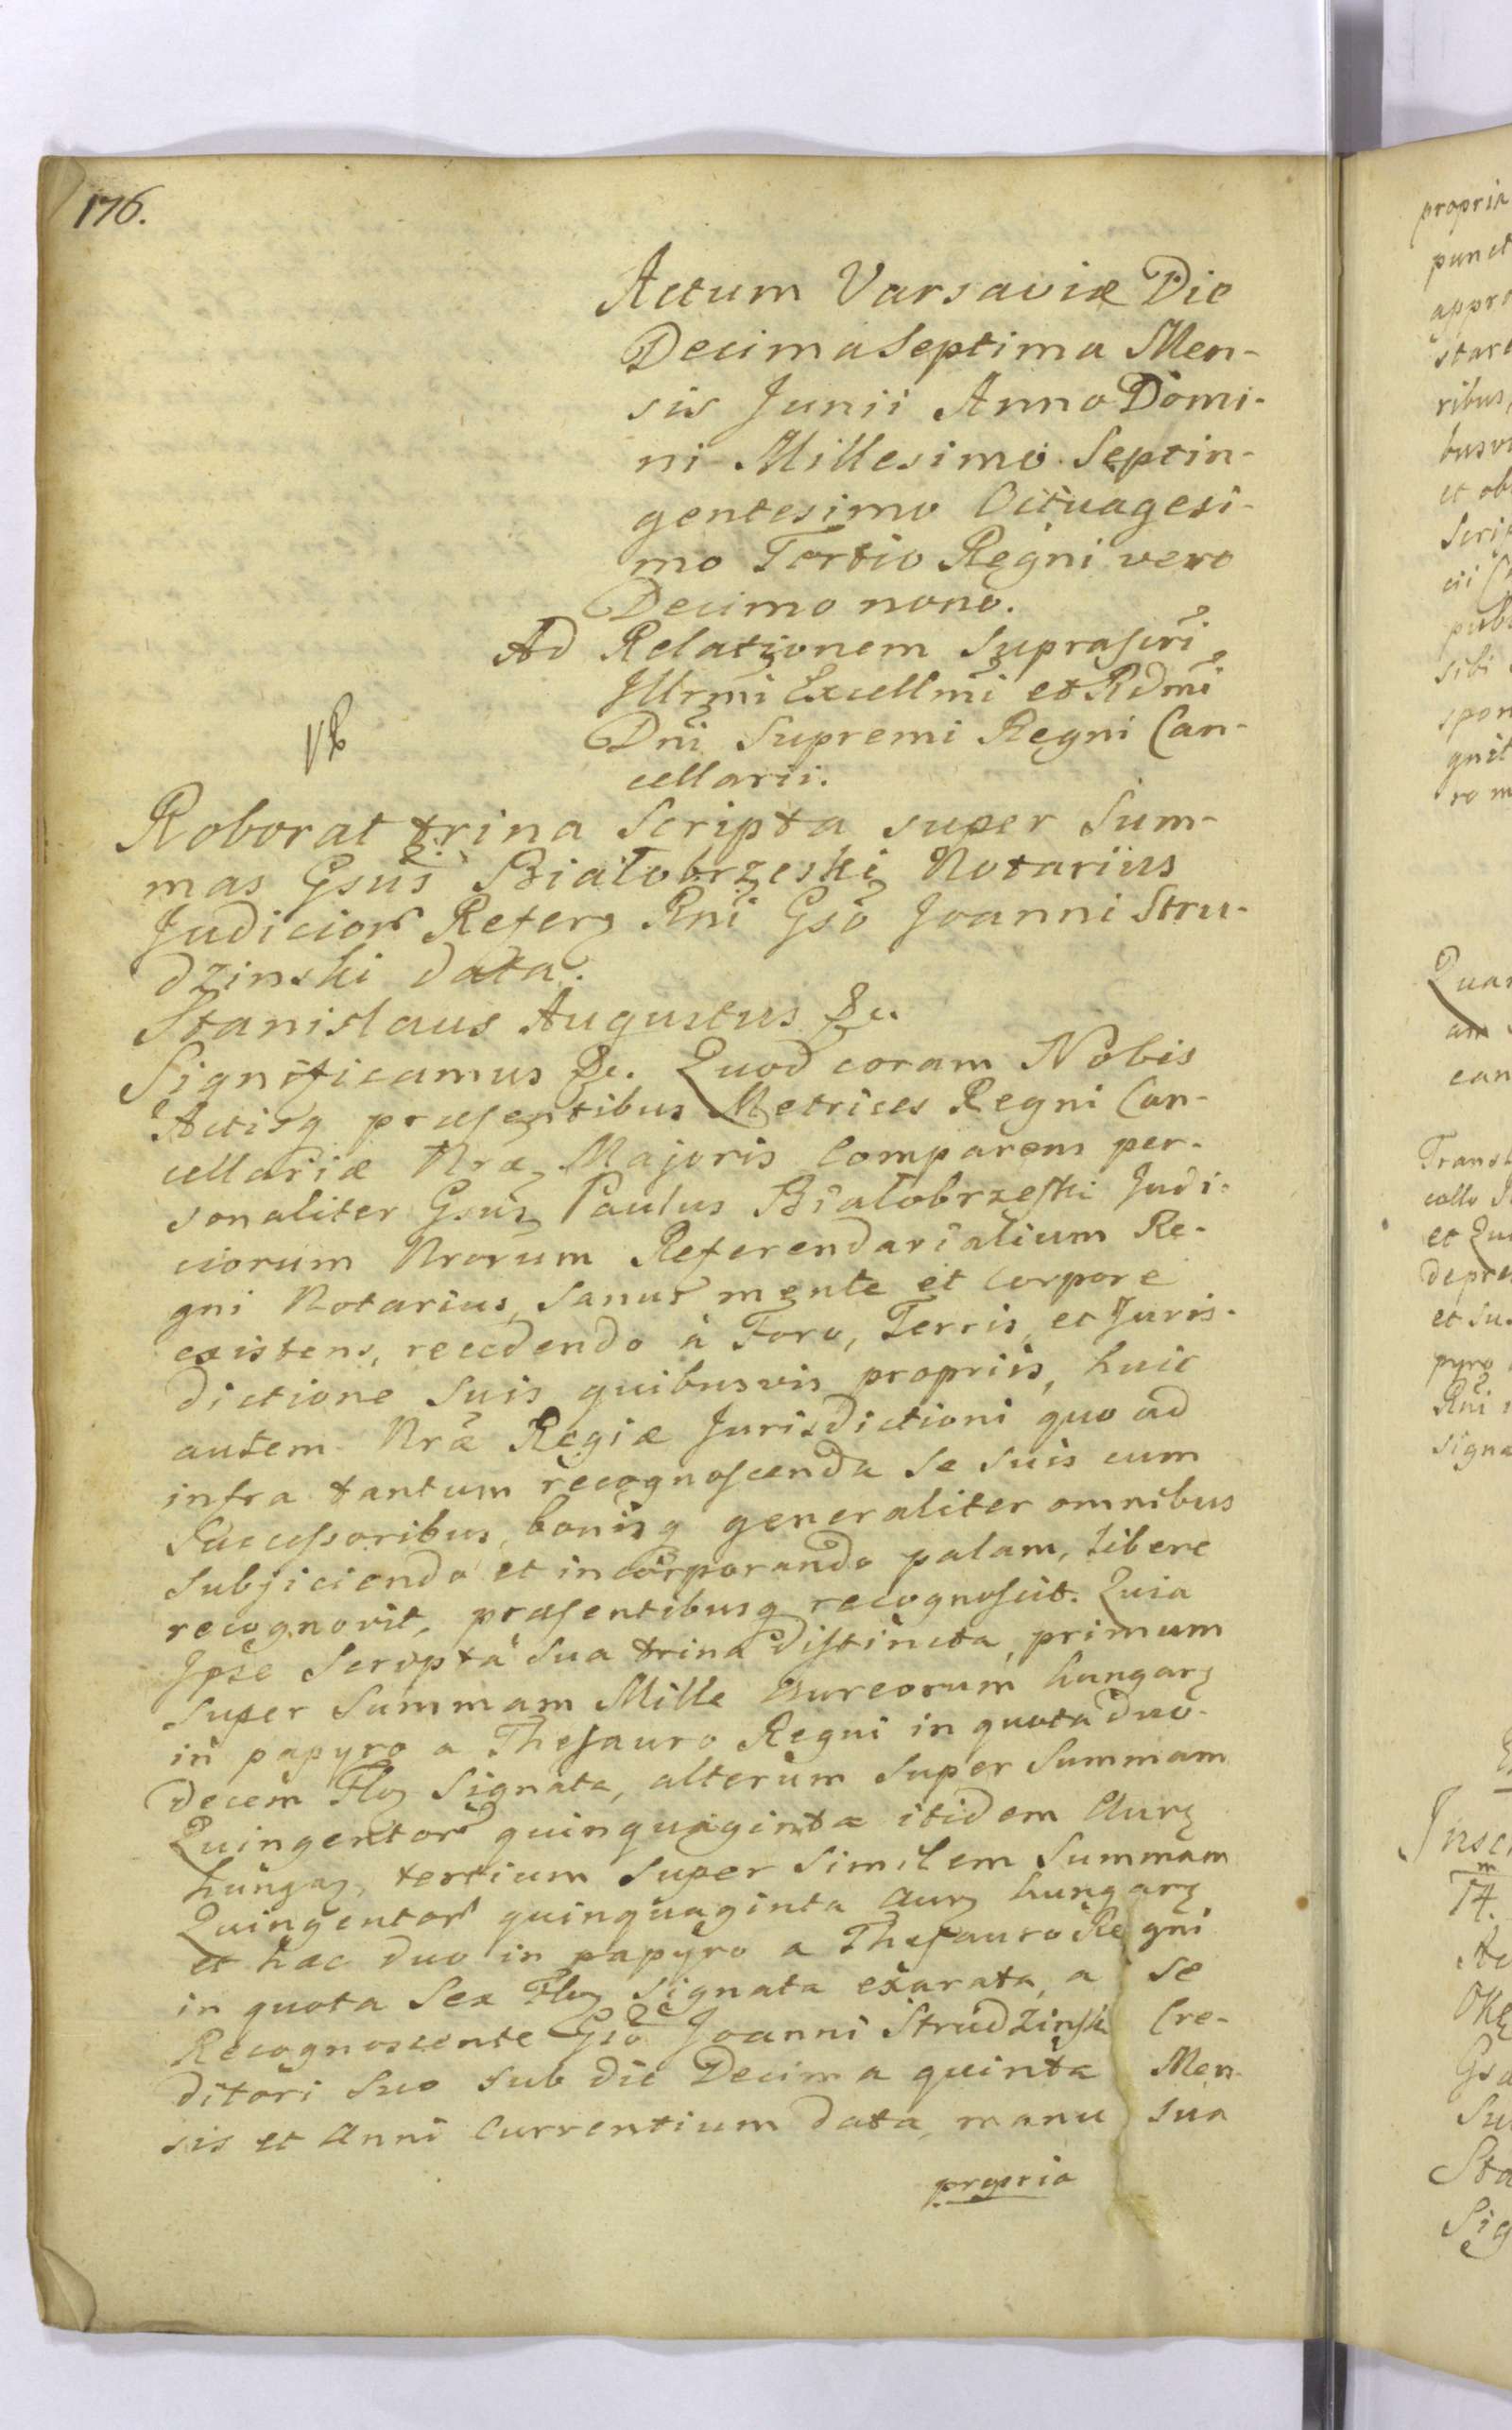 176.
Actum Varsaviæ Die
Decima Septima Men-
sis Junii Anno Domi-
ni Millesimo Septin-
gentesimo Octuagesi-
mo Tertio Regni vero
Decimo nono.
Ad Relationem Suprascri
Illrmi Excellmi et Rdmi
Dni Supremi Regni Can-
cellarii.
Roborat trina Scripta super Sum-
mas Gsus Białobrzeski Notarius
Judicior Referz Rni Gso Joanni Stru-
dzinski data.
Stanislaus Augustus &c.
Significamus &c. Quod coram Nobis
Actisq præsentibus Metrices Regni Can-
cellariæ Nræ Majoris Comparens per-
sonaliter Gsus Paulus Białobrzeski Judi-
ciorum Nrorum Referendarialium Re-
gni Notarius, Sanus mente et Corpore
existens, recedendo à Foro, Terris, et Juris-
dictione Suis quibusvis propriis, huic
autem Nræ Regiæ Jurisdictioni quo ad
infra tantum recognoscenda Se Suis cum
Successoribus, bonisq generaliter omnibus
Subjiciendo et incorporando palam, libere
recognovit, præsentibusq recognoscit. Quia
Ipse Scripta Sua trina distincta, primum
Super Summam Mille Aureorum hungarz
in papyro a Thesauro Regni in quota duo-
decem Floz Signata, alterum Super Summam
Quingentor quinquaginta itidem Aurz
hungaz, tertium Super Similem Summam
Quingentor quinquaginta Aurz hungarz
et hæc duo in papyro a Thesauro Regni
in quota Sex Floz Signata exarata, a Se
Recognoscente Gso Joanni Strudzinski Cre-
ditori Suo Sub die Decima quinta Men-
sis et Anni Currentium data, manu Sua
propria
propria
punct
appro
star
ribus,
busvi
et ob
Scrip
cii
pub
sibi
spon
gnit
ro m
Quar
am
can
Transl
collo
et Qui
depre
et Su
pyro
Rni
signa
Insc
m
14.
Ac
Oke
Gsa
Su
Sta
Sig